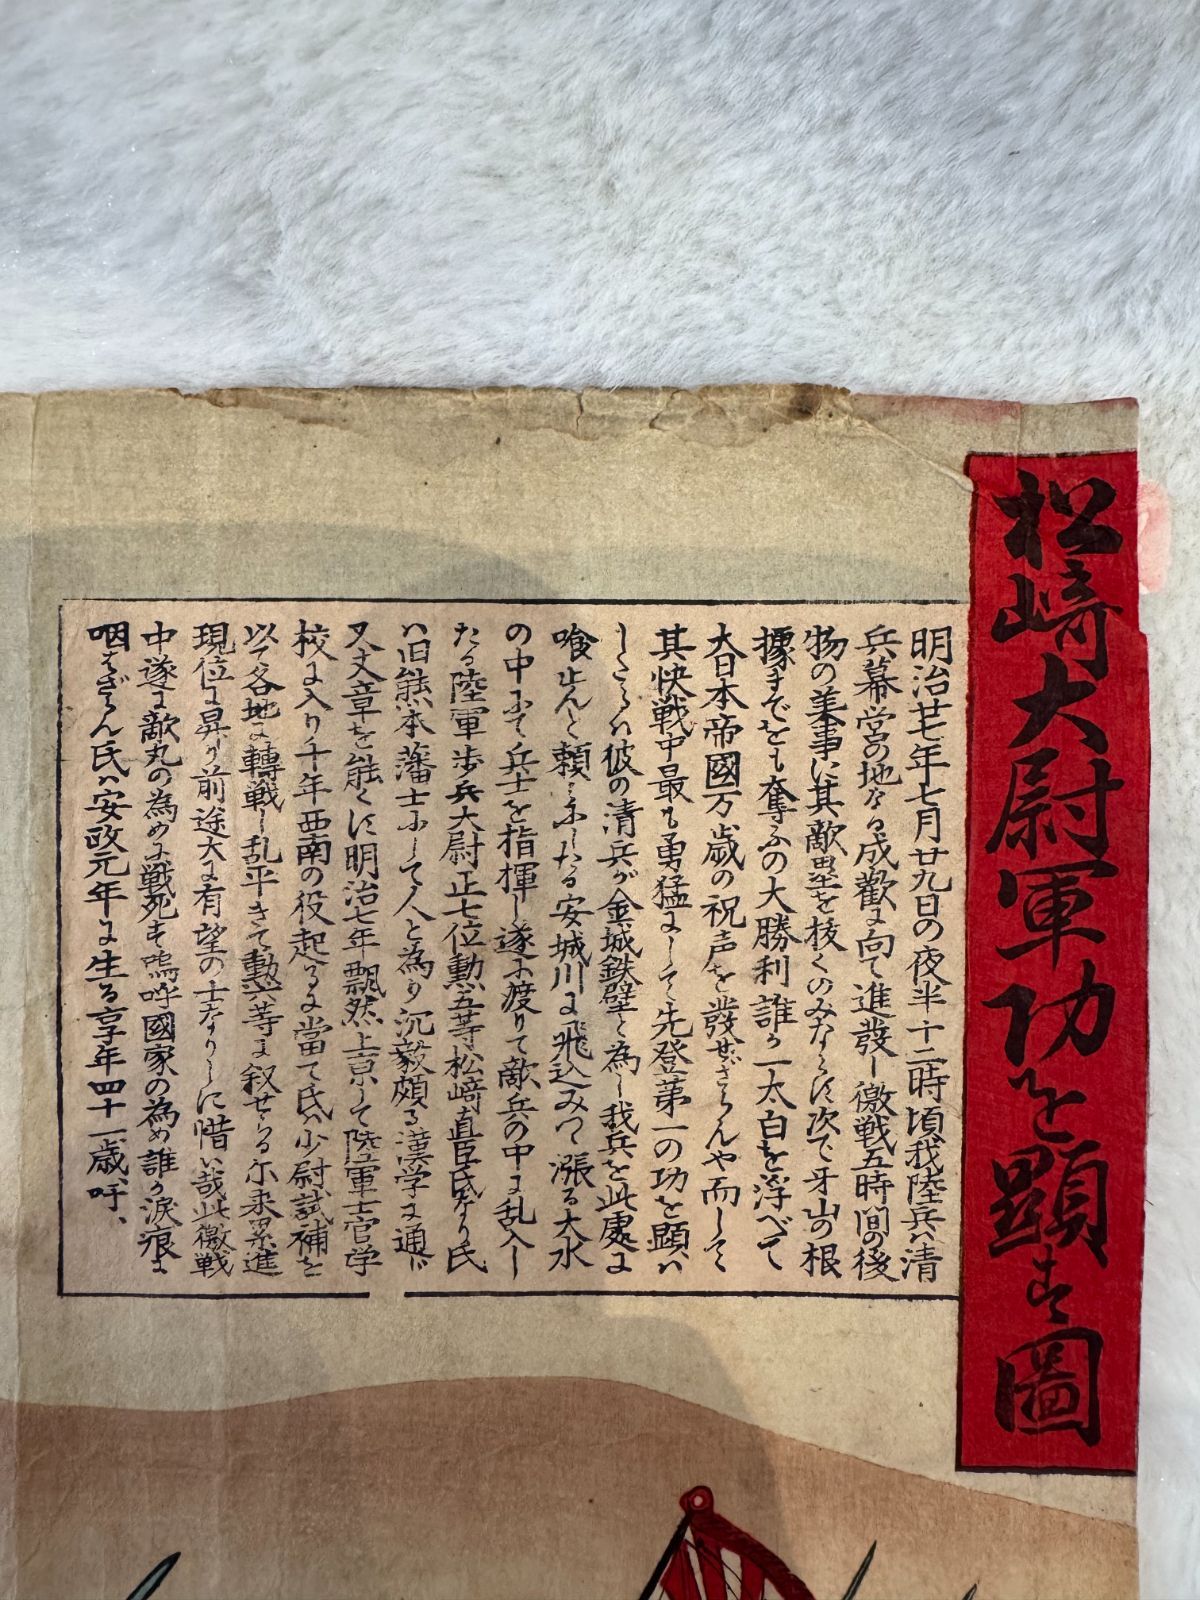 松崎大尉軍功を顕す圖
明治廿七年七月廿九日の夜半十二時頃我陸兵ハ清
兵幕営の地なる成歡に向て進發し激戦五時間の後
物の美事に其敵塁を抜くのみならに次で牙山の根
據までをも奪ふの大勝利誰か一太白を浮べて
大日本帝國万歳の祝声を發せざらんや而して
其快戦中最も勇猛にして先登第一の功を顕ハ
したるハ彼の清兵が金城鉄壁と為し我兵を此處に
喰止んと頼みにしたる安城川に飛込みつゝ漲る大水
の中にて兵士を指揮し遂に渡りて敵兵の中に乱入し
たる陸軍歩兵大尉正七位勲五等松崎直臣氏なり氏
ハ旧熊本藩士にして人と為り沉毅頗る漢学に通じ
又文章を能くに明治七年飄然上京して陸軍士官学
校に入り十年西南の役起るに當て氏ハ少尉試補を
以て各地に轉戦し乱平きて勲六等に叙せらる尓来累進
現位に昇り前途大に有望の士なりしに惜い哉此激戦
中遂に敵丸の為めに戦死す嗚呼國家の為め誰か涙痕に
咽ばざらん氏ハ安政元年に生る享年四十一歳、吁、